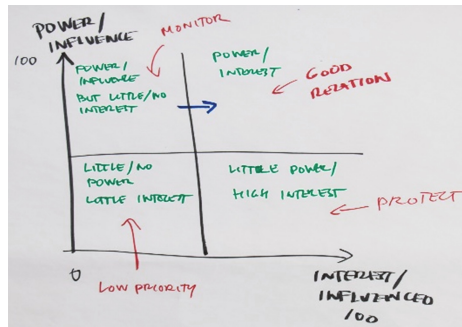 POWER/
INFLUENCE
MONITOR
100
POWER/
INFLUENCE
BUT LITTLE/NO
INTEREST
POWER/
INTEREST
GOOD
RELATION
LITTLE/NO
POWER
LITTLE INTEREST
LITTLE POWER/
HIGH INTEREST
PROTECT
0
LOW PRIORITY
INTEREST/
INFLUENCED
100